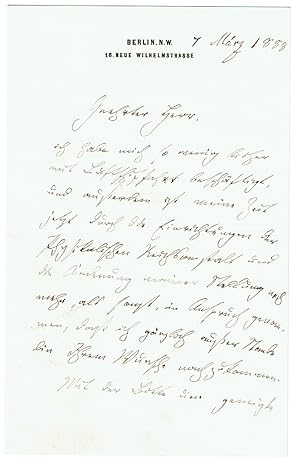 BERLIN. N.W. 7 März 1888
16. NEUE WILHELMSTRASSE
Geehrter Herr.
ich habe mich so wenig bisher
mit Luftschiffahrt beschäftigt,
und außerdem ist meine Zeit
jetzt durch die Einrichtungen der
Physikalischen Reichsanstalt und
die Ordnung meiner Stellung noch
mehr als sonst, in Anspruch genom-
men, daß ich gänzlich außer Stande
bin Ihrem Wunsche nachzukommen.
Mit der Bitte um geneigte